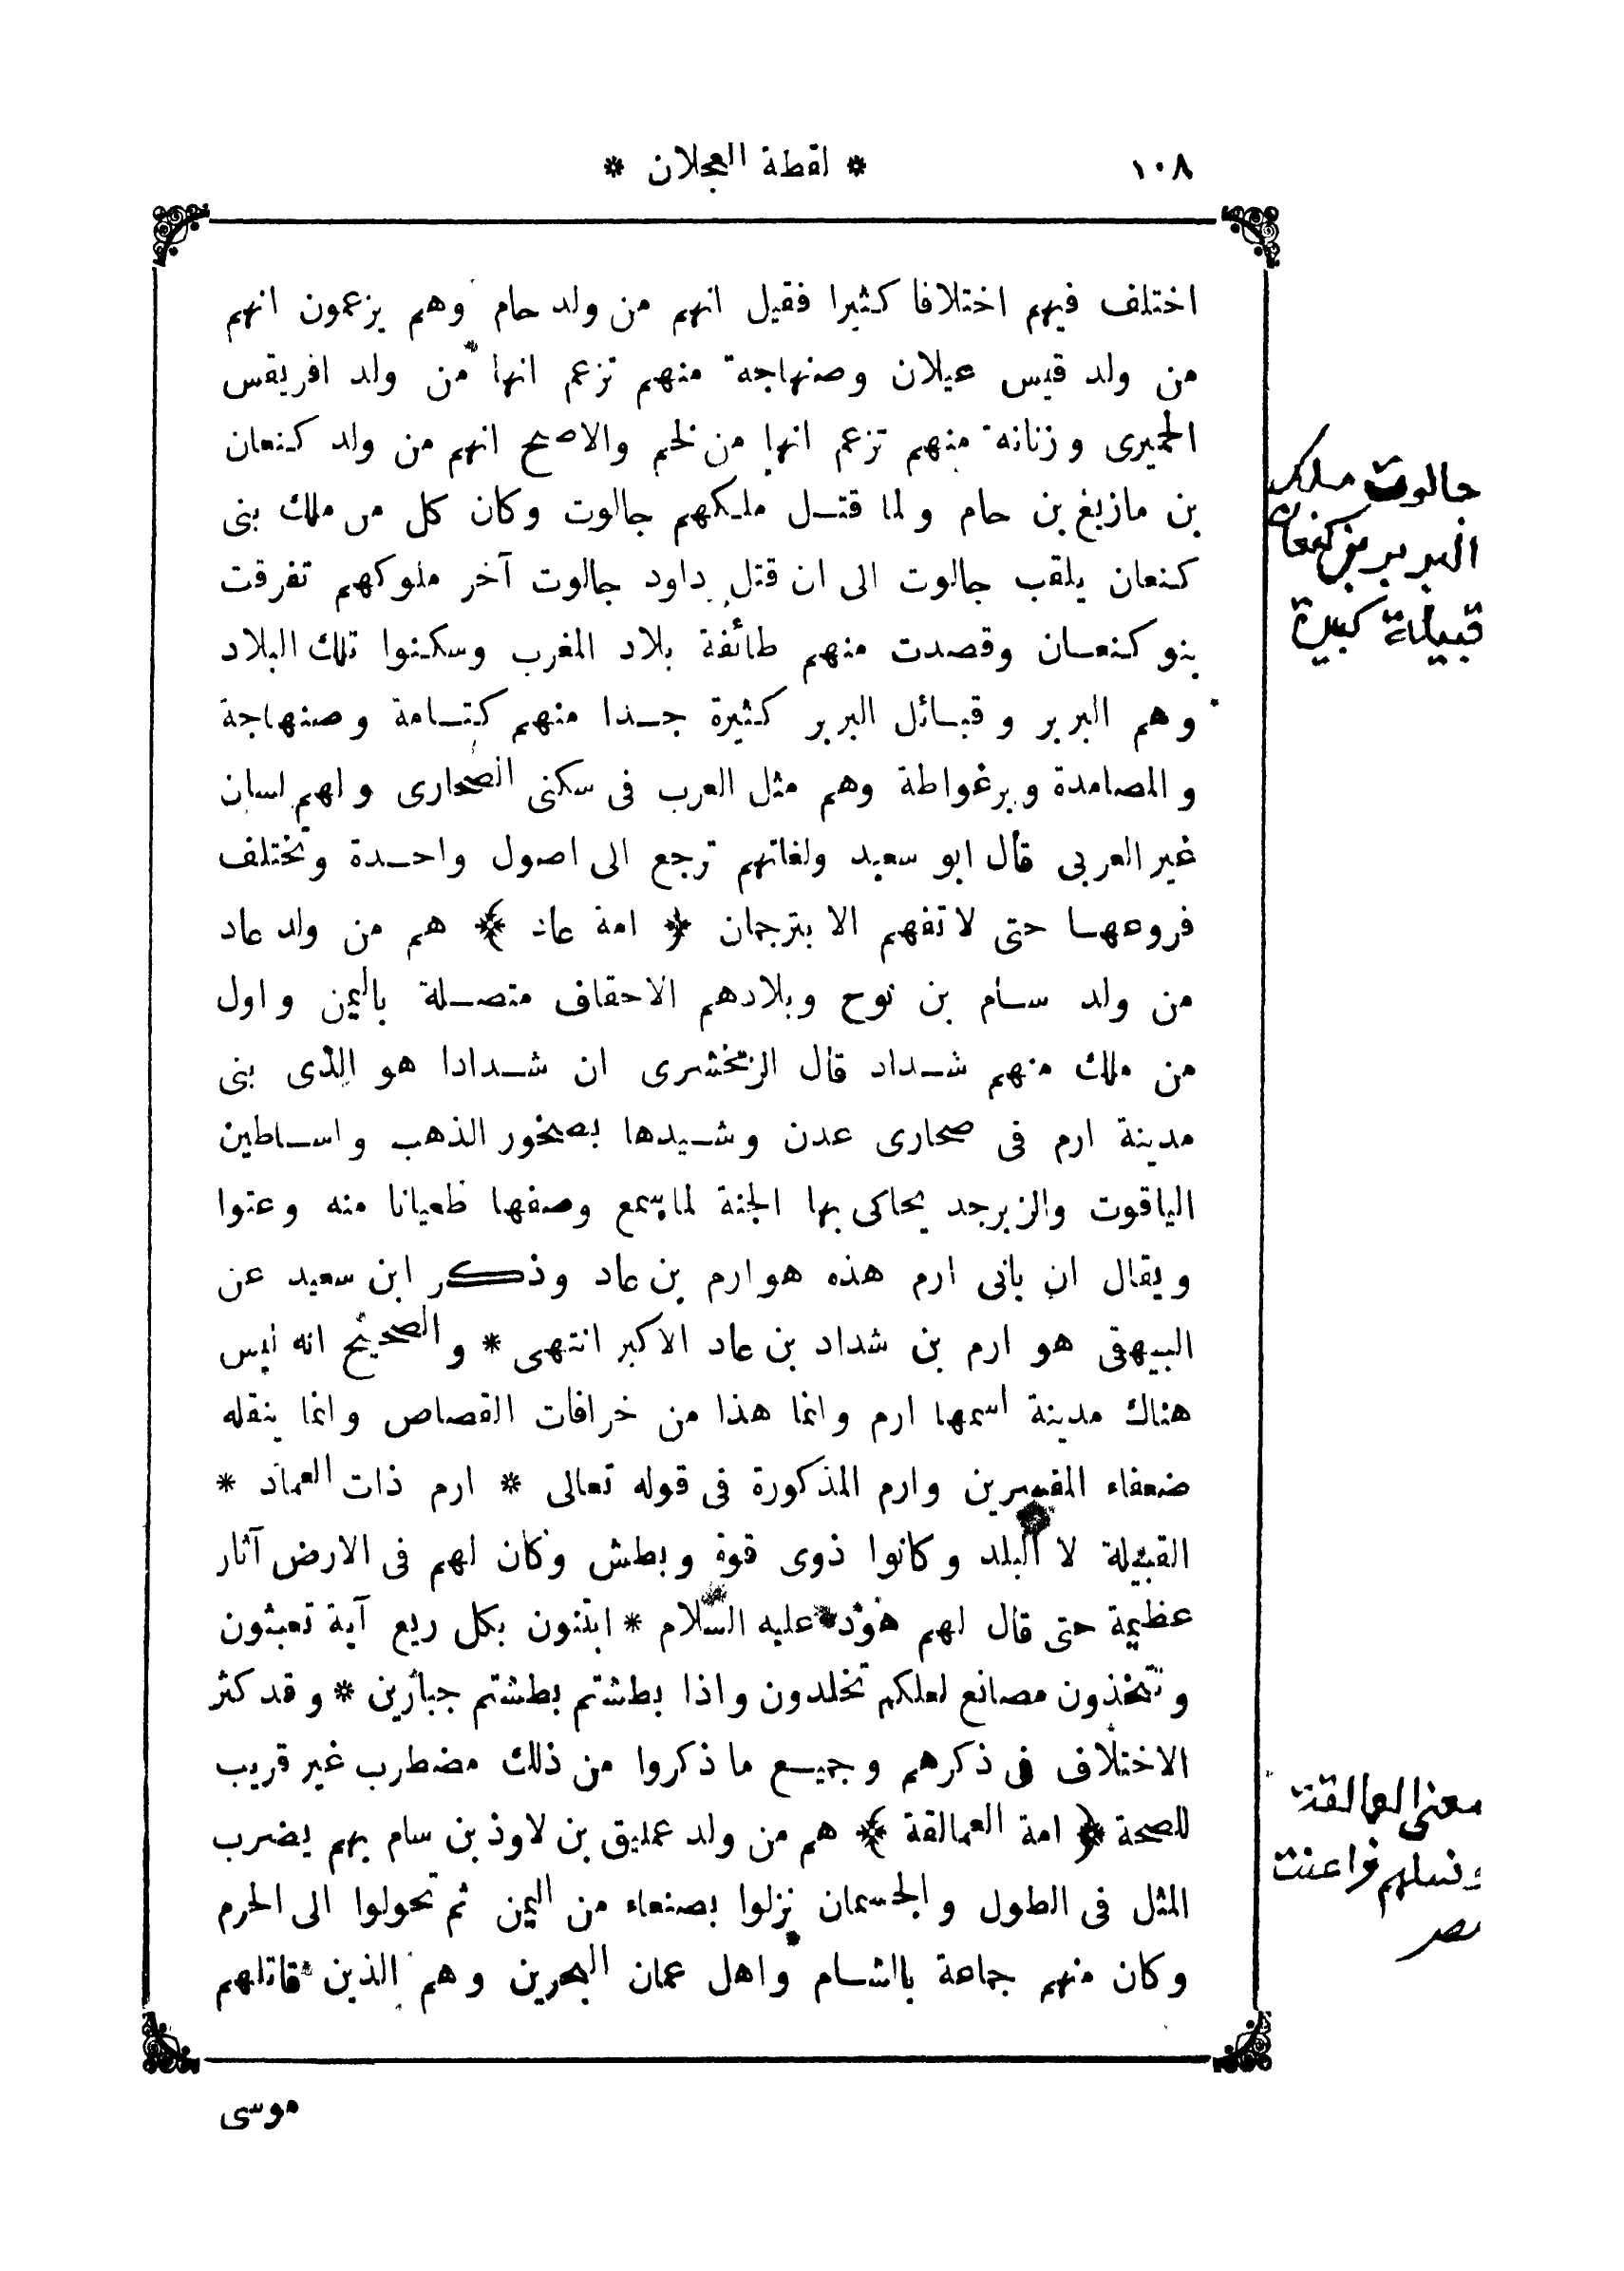 ١٠٨ * لقطة العجلان *
اختلف فيهم اختلافا كثيرا فقيل انهم من ولد حام وهم يزعمون انهم
من ولد قيس عيلان وصنهاجة منهم تزعم انها من ولد افريقس
الحميرى وزنانة منهم تزعم انها من لخم والاصح انهم من ولد كنعان
بن مازيغ بن حام ولما قتل ملكهم جالوت وكان كل من ملك بنى
كنعان يلقب جالوت الى ان قتل داود جالوت آخر ملوكهم تفرقت
بنو كنعان وقصدت منهم طائفة بلاد المغرب وسكنوا تلك البلاد
وهم البربر وقبائل البربر كثيرة جدا منهم كتامة وصنهاجة
والمصامدة وبرغواطة وهم مثل العرب فى سكنى الصحارى ولهم لسان
غير العربى قال ابو سعيد ولغاتهم ترجع الى اصول واحدة وتختلف
فروعها حتى لا تفهم الا بترجمان ﴿ امة عاد ﴾ هم من ولد عاد
من ولد سام بن نوح وبلادهم الاحقاف متصلة باليمن واول
من ملك منهم شداد قال الزمخشرى ان شدادا هو الذى بنى
مدينة ارم فى صحارى عدن وشيدها بصخور الذهب واساطين
الياقوت والزبرجد يحاكى بها الجنة لما سمع وصفها طغيانا منه وعتوا
ويقال ان بانى ارم هذه هو ارم بن عاد وذكر ابن سعيد عن
البيهقى هو ارم بن شداد بن عاد الاكبر انتهى * والصحيح انه ليس
هناك مدينة اسمها ارم وانما هذا من خرافات القصاص وانما ينقله
ضعفاء المفسرين وارم المذكورة فى قوله تعالى * ارم ذات العماد *
القبيلة لا البلد وكانوا ذوى قوة وبطش وكان لهم فى الارض آثار
عظيمة حتى قال لهم هود عليه السلام * ابتنون بكل ريع آية تعبثون
وتتخذون مصانع لعلكم تخلدون واذا بطشتم بطشتم جبارين * وقد كثر
الاختلاف فى ذكرهم وجميع ما ذكروا من ذلك مضطرب غير قريب
للصحة ﴿ امة العمالقة ﴾ هم من ولد عمليق بن لاوذ بن سام بهم يضرب
المثل فى الطول والجسمان نزلوا بصنعاء من اليمن ثم تحولوا الى الحرم
وكان منهم جماعة بالشام واهل عمان البحرين وهم الذين قاتلهم
موسى
جالوت ملك
البربر بن كنعان
قبيلة كبيرة
معنى العمالقة
ونسلهم فراعنة
مصر